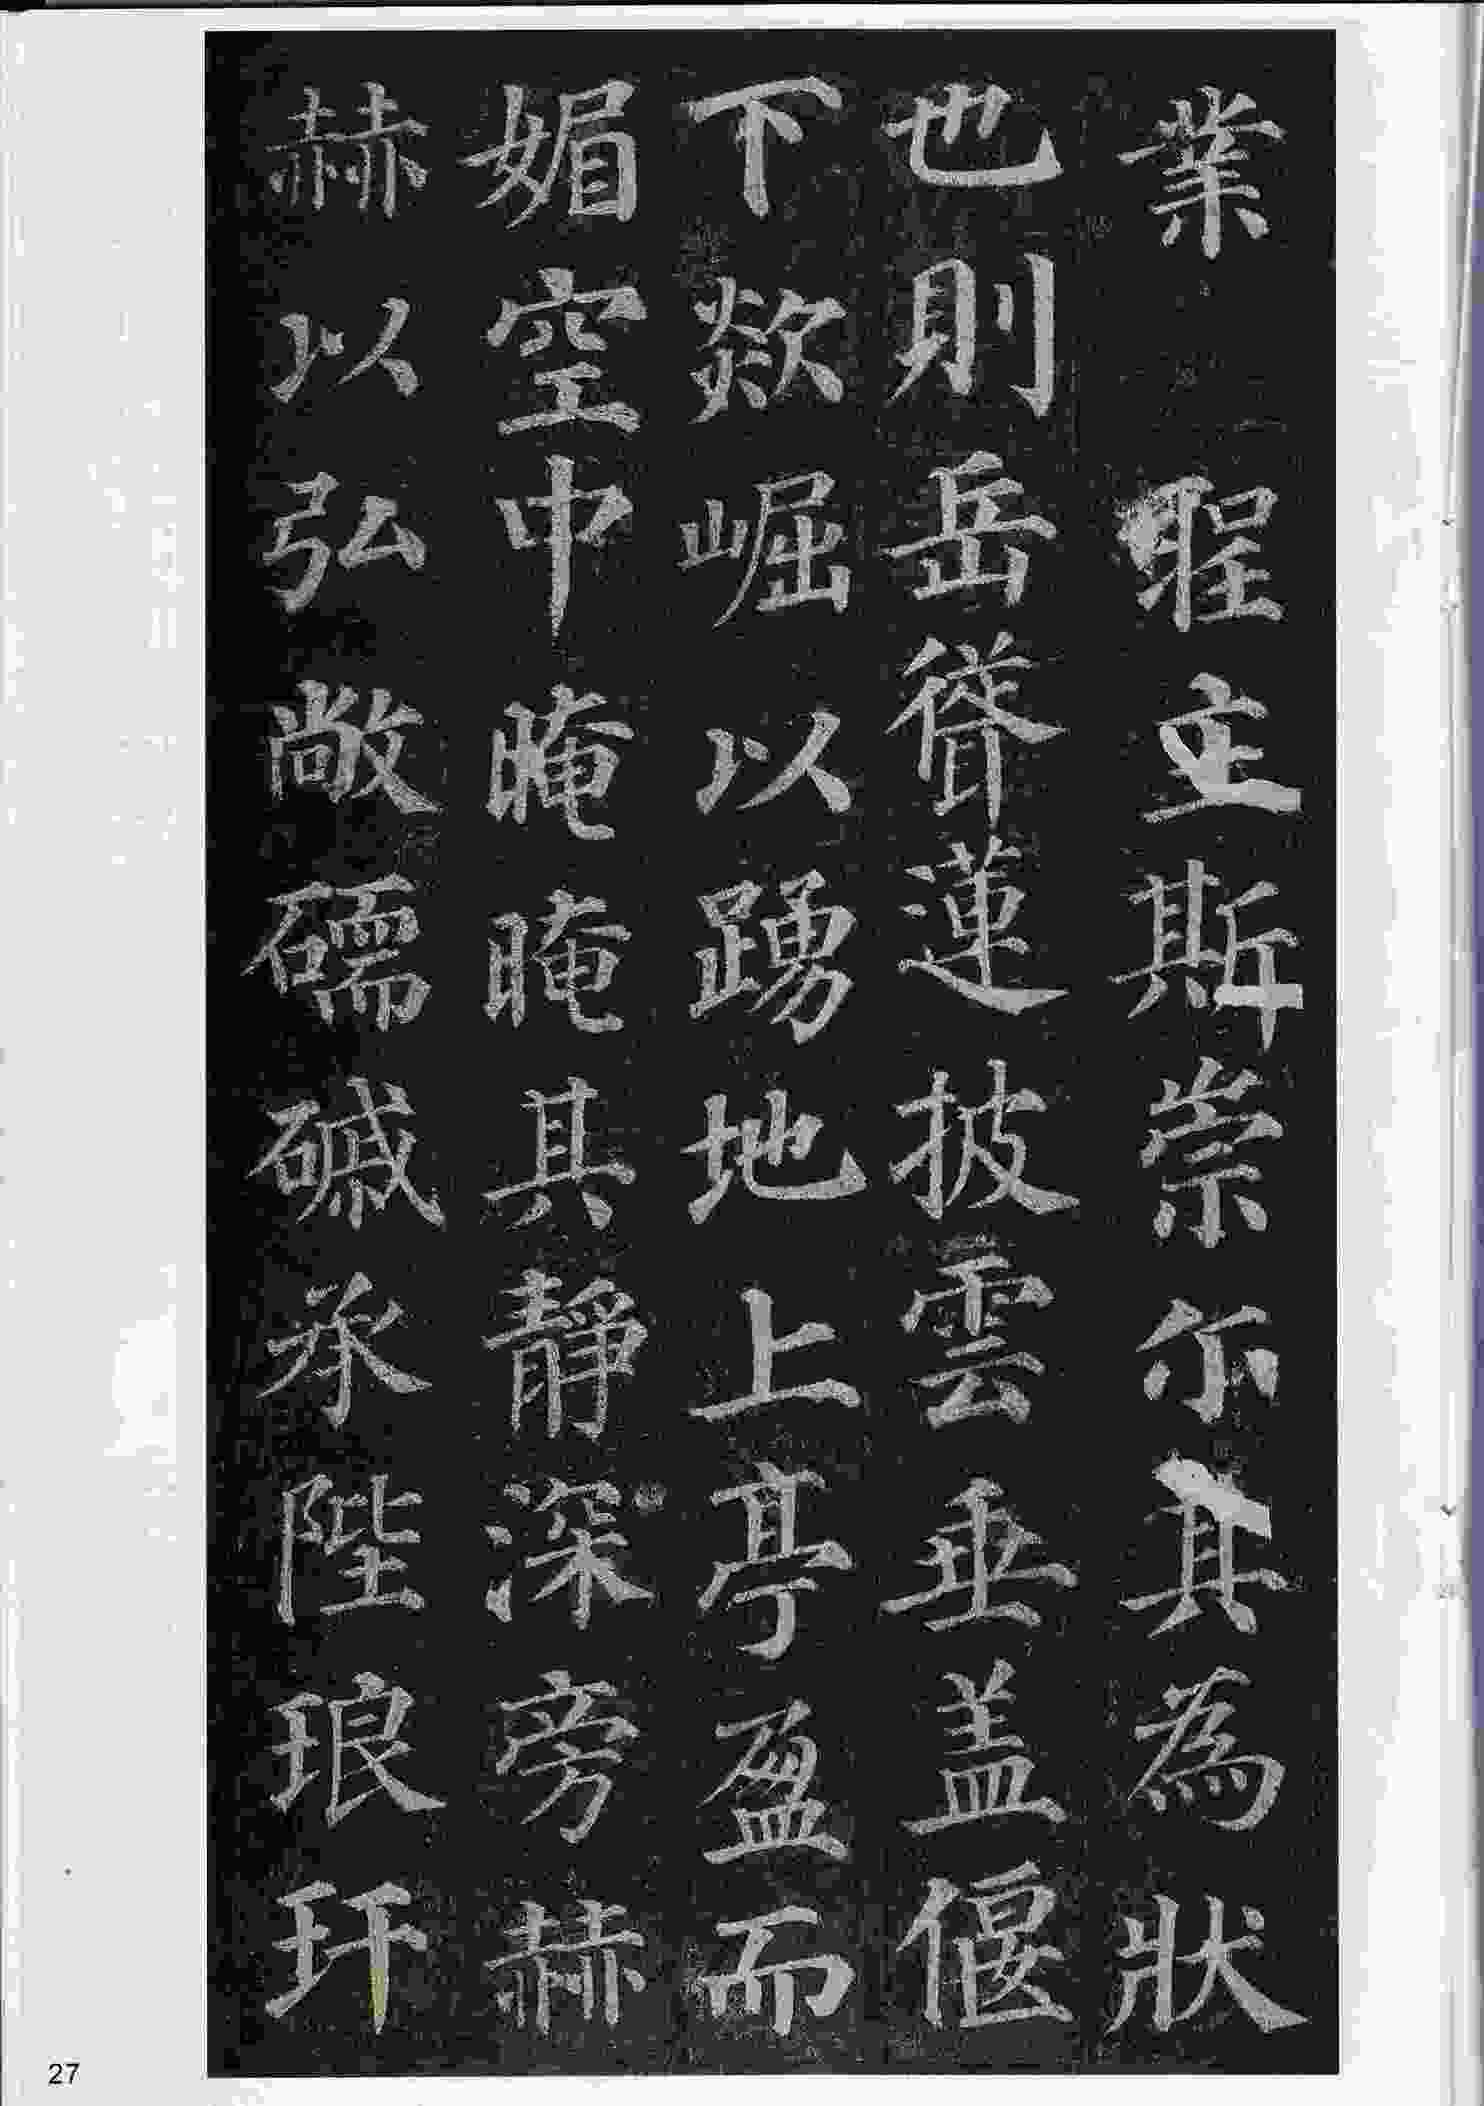 業 聖主斯崇尔其為狀
也則岳聳蓮披雲垂盖偃
下欻崛以踴地上亭盈而
媚空中晻晻其靜深旁赫
赫以弘敞礝磩承陛琅玕
27